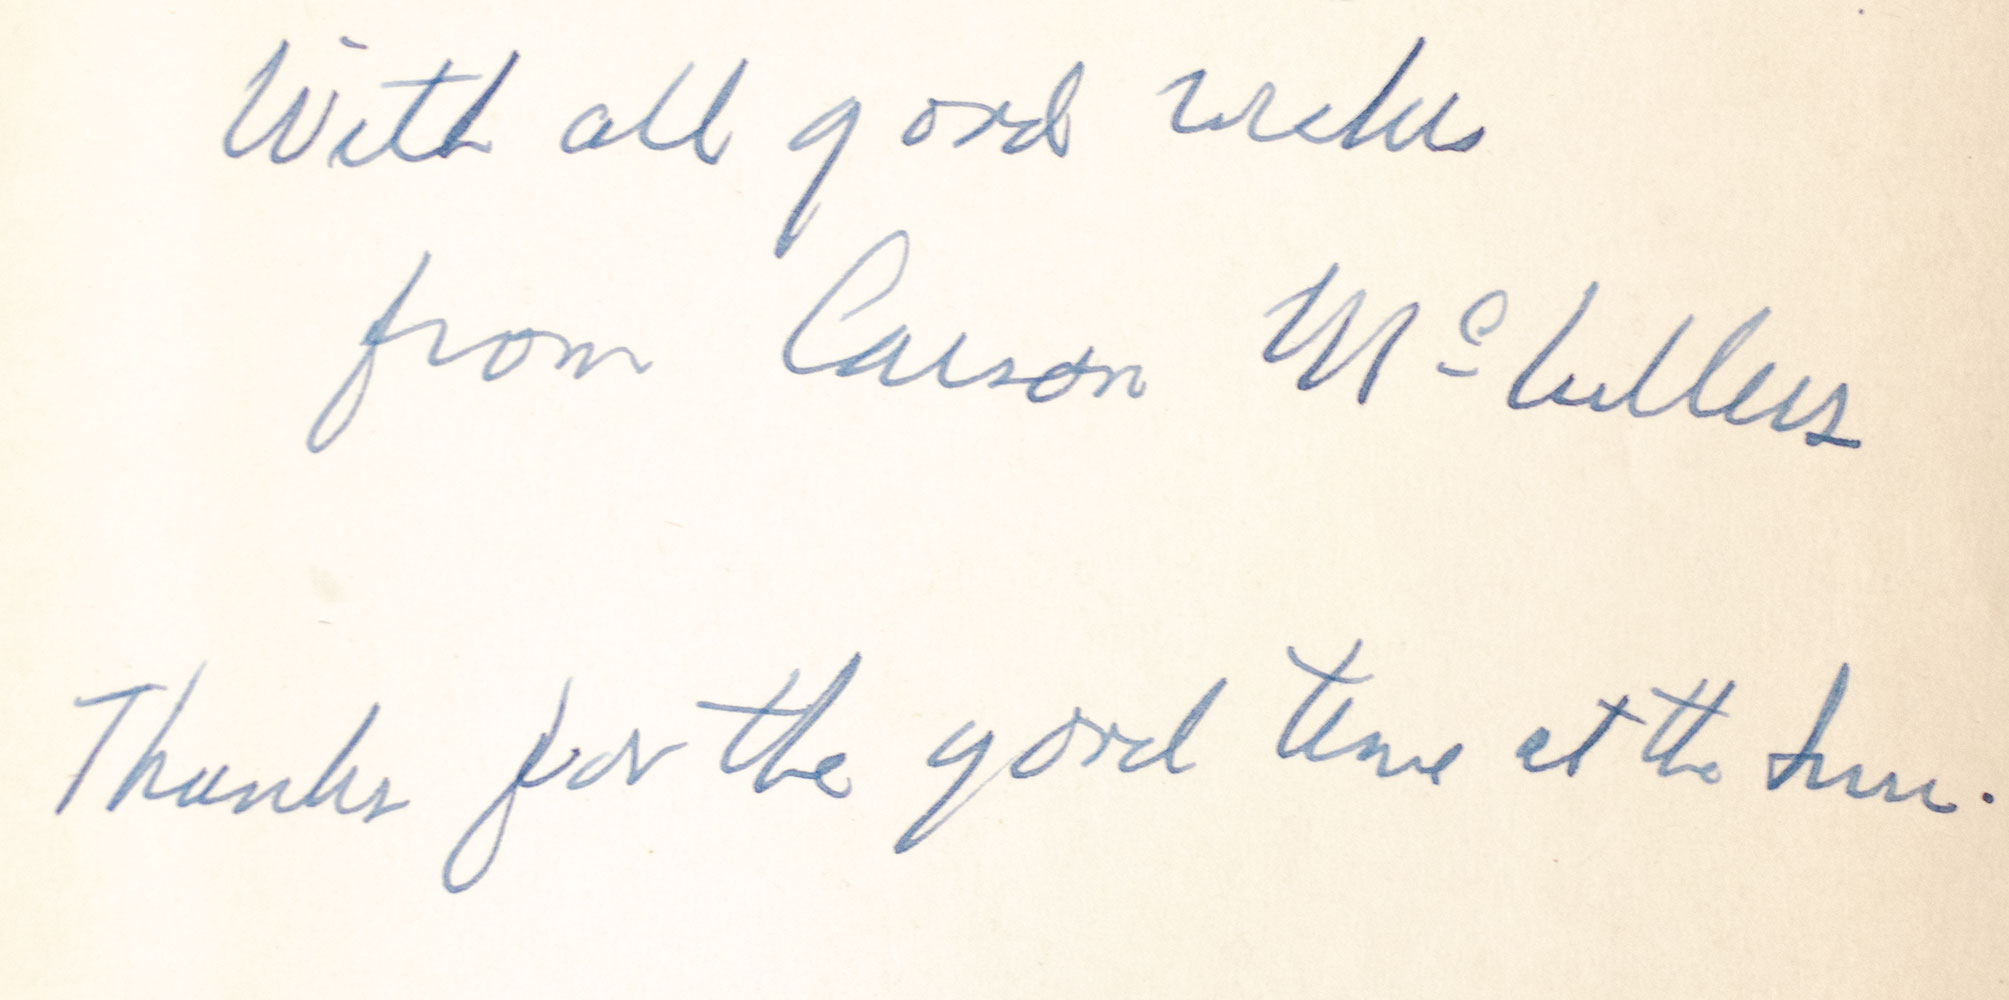 With all good wishes
from Carson McCullers
Thanks for the good time at the Inn.